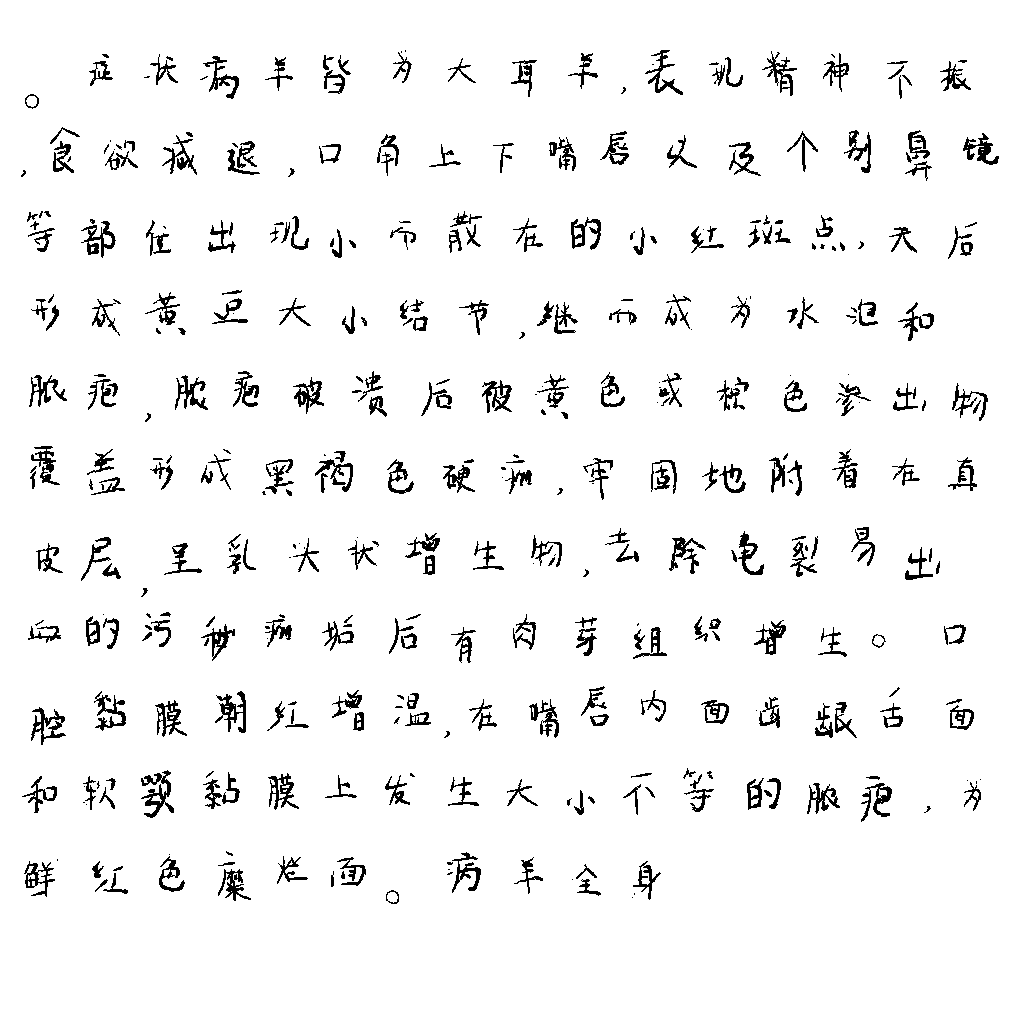 。症状病羊皆为大耳羊,表现精神不振
,食欲减退,口角上下嘴唇以及个别鼻镜
等部位出现小而散在的小红斑点,天后
形成黄豆大小结节,继而成为水泡和
脓疱,脓疱破溃后被黄色或棕色渗出物
覆盖形成黑褐色硬痂,牢固地附着在真
皮层,呈乳头状增生物,去除龟裂易出
血的污秽痂垢后有肉芽组织增生。口
腔黏膜潮红增温,在嘴唇内面齿龈舌面
和软颚黏膜上发生大小不等的脓疱,为
鲜红色糜烂面。病羊全身